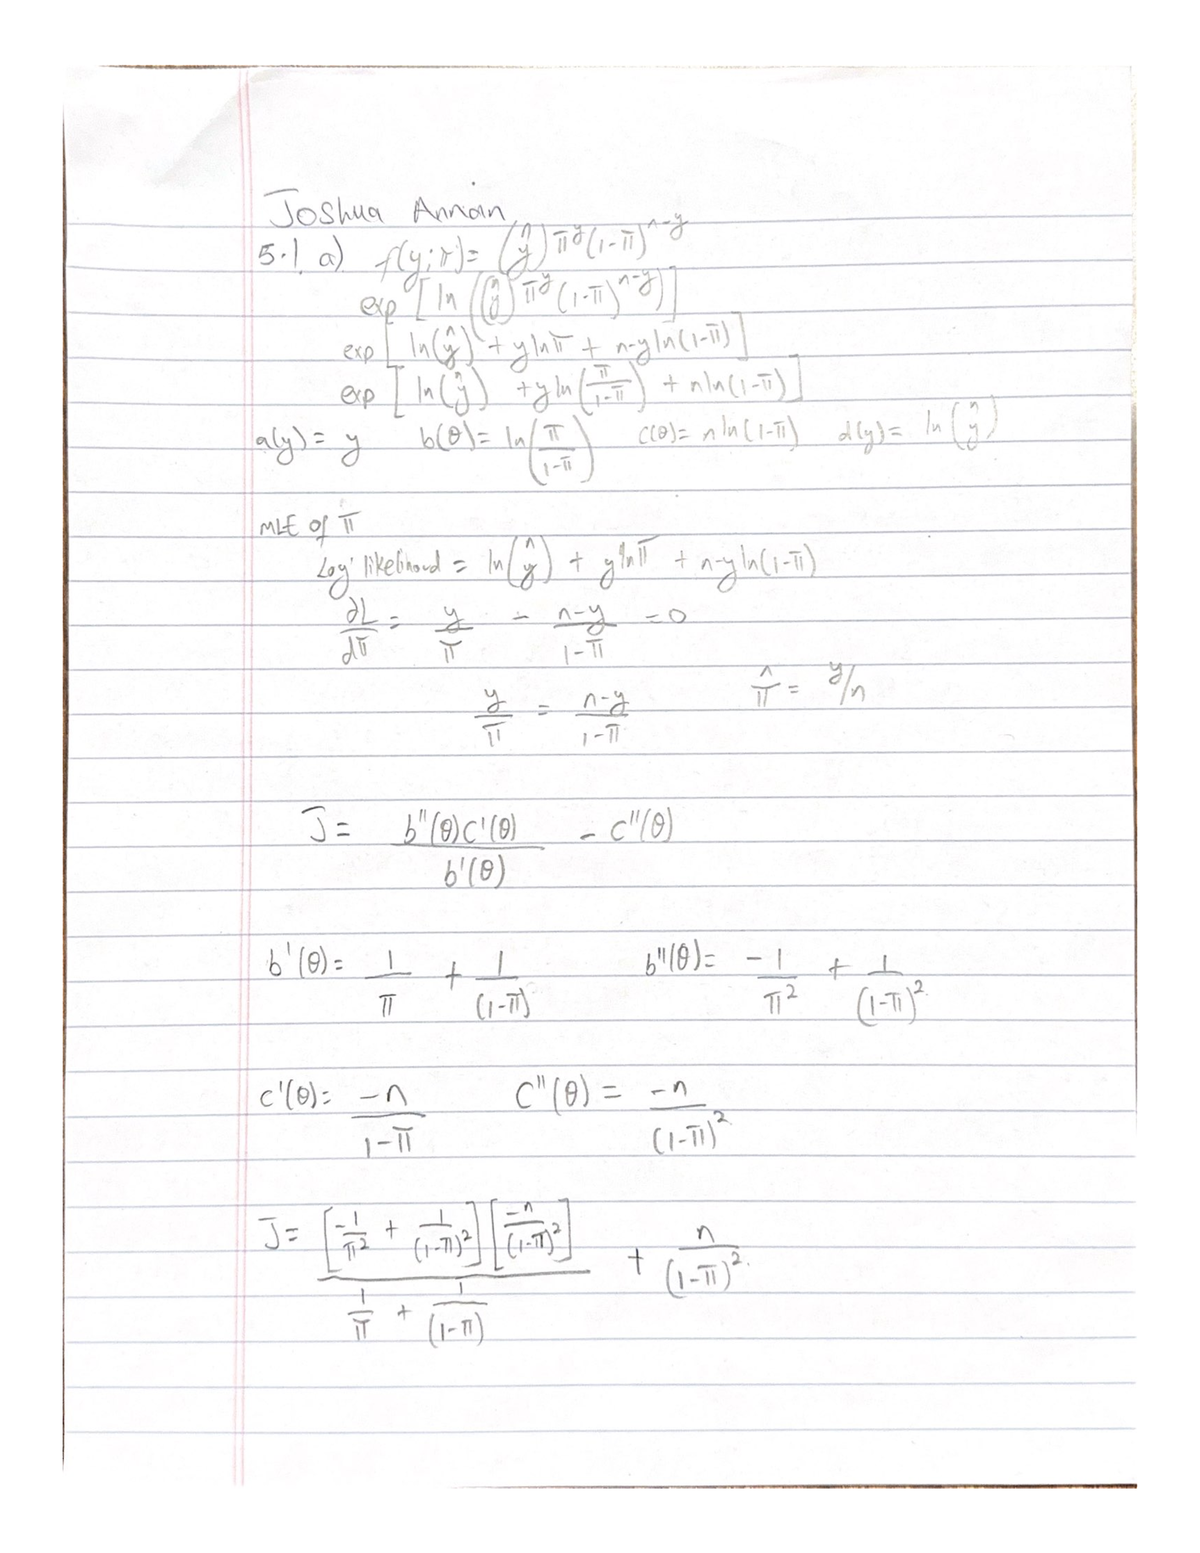 Joshua Annan
5.1 a) f(y;π)= (n y) π^y (1-π)^n-y
exp [ ln ((n y) π^y (1-π)^n-y) ]
exp [ ln(n y) + y lnπ + n-y ln(1-π) ]
exp [ ln(n y) + y ln(π/1-π) + n ln(1-π) ]
a(y) = y b(θ) = ln(π/1-π) c(θ) = n ln(1-π) d(y) = ln(n y)
MLE of π
Log likelihood = ln(n y) + y lnπ + n-y ln(1-π)
∂L/dπ = y/π - n-y/1-π = 0
y/π = n-y/1-π π̂ = y/n
J = b''(θ)c'(θ)/b'(θ) - c''(θ)
b'(θ) = 1/π + 1/(1-π) b''(θ) = -1/π² + 1/(1-π)²
c'(θ) = -n/1-π c''(θ) = -n/(1-π)²
J = [-1/π² + 1/(1-π)²][-n/(1-π)²]/1/π + 1/(1-π) + n/(1-π)².